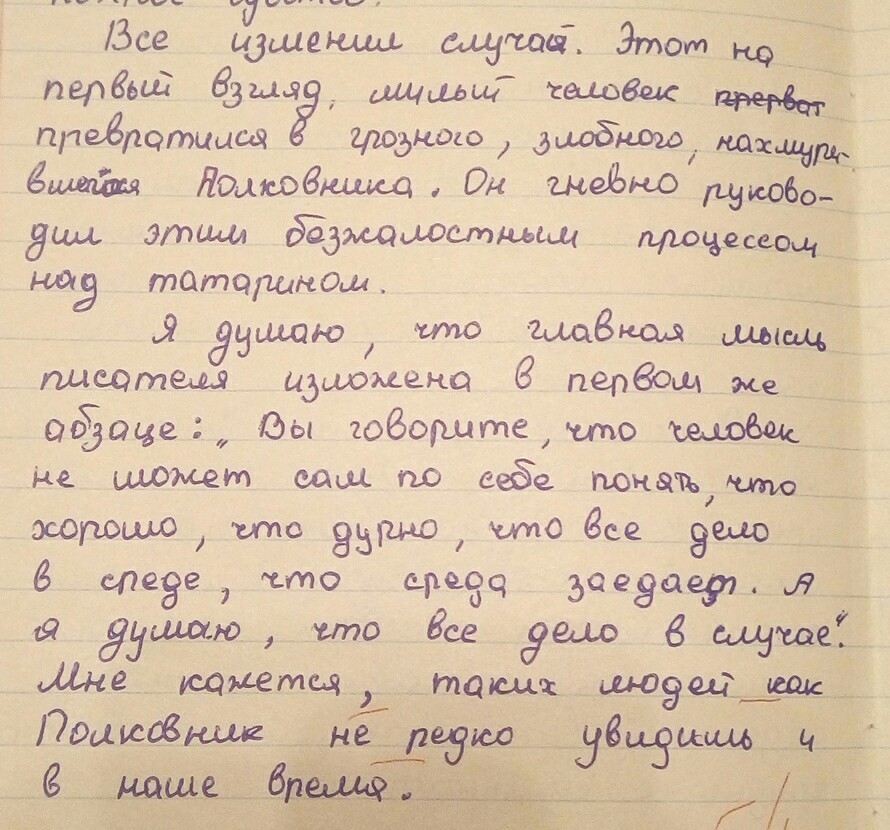 Все изменил случай. Этот на
первый взгляд, милый человек прерват
превратился в грозного, злобного, нахмури-
вшегося Полковника. Он гневно руково-
дил этим безжалостным процессом
над татарином.
Я думаю, что главная мысль
писателя изложена в первом же
абзаце: „Вы говорите, что человек
не может сам по себе понять, что
хорошо, что дурно, что все дело
в среде, что среда заедает. А
я думаю, что все дело в случае“.
Мне кажется, таких людей как
Полковник не редко увидишь и
в наше время.